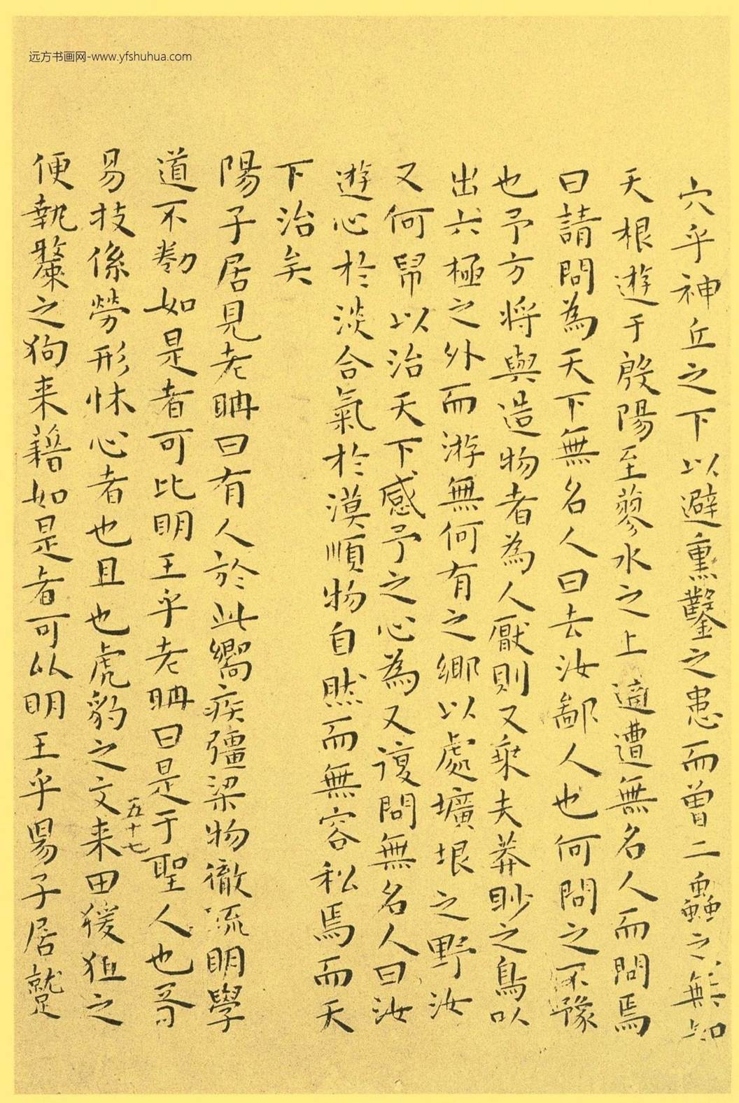 远方书画网-www.yfshuhua.com
穴乎神丘之下以避熏鑿之患而曾二蟲之無知
天根遊于殷陽至蓼水之上適遭無名人而問焉
曰請問為天下無名人曰去汝鄙人也何問之不豫
也予方將與造物者為人厭則又乗夫莽眇之鳥以
出六極之外而游無何有之鄉以處壙垠之野汝
又何帠以治天下感予之心為又復問無名人曰汝
遊心於淡合氣於漠順物自然而無容私焉而天
下治矣
陽子居見老聃曰有人於此嚮疾彊梁物徹疏明學
道不勌如是者可比明王乎老聃曰是于聖人也胥
易技係勞形怵心者也且也虎豹之文来田猨狙之
五十七
便執斄之狗来藉如是者可以明王乎陽子居蹵